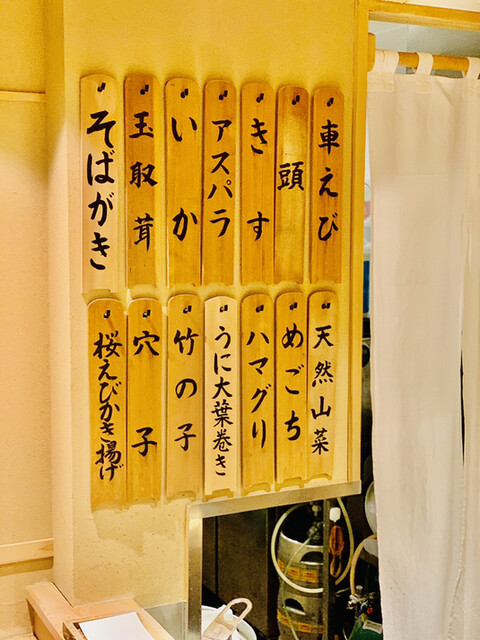 車えび
頭
きす
アスパラ
いか
玉取茸
そばがき
天然山菜
めごち
ハマグリ
うに大葉巻き
竹の子
穴子
桜えびかき揚げ